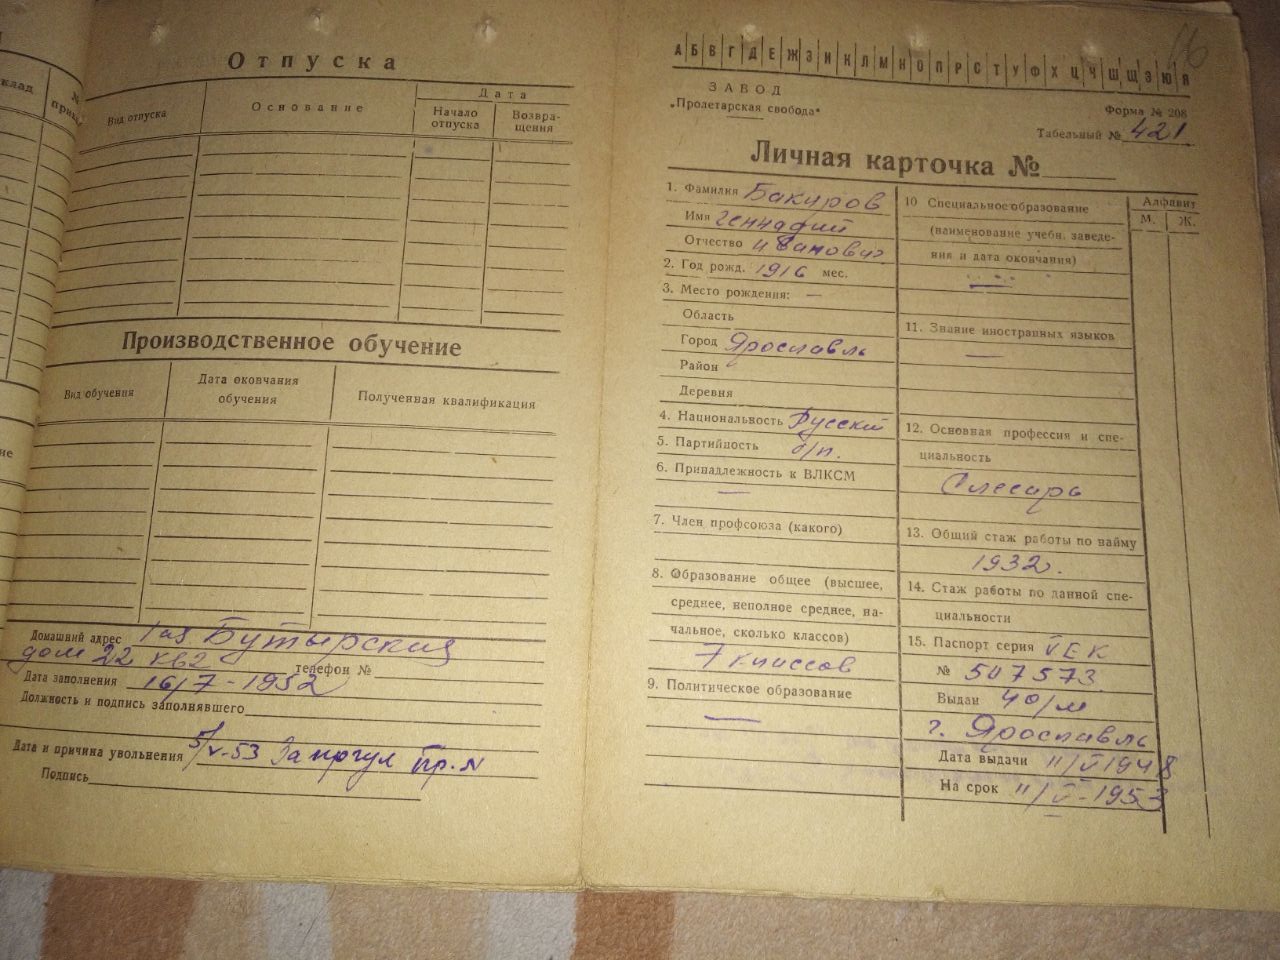 клад
Отпуска
Вид отпуска
Основание
Дата
Начало отпуска
Возвра-
щения
Производственное обучение
Вид обучения
Дата окончания
обучения
Полученная квалификация
Домашний адрес 1 ая Бутырская
дом 22 кв2 телефон №
Дата заполнения 16/7-1952
Должность и подпись заполнявшего
Дата и причина увольнения 5/V-53 За прогул Пр. N
Подпись
А Б В Г Д Е Ж З И К Л М Н О П Р С Т У Ф Х Ц Ч Ш Щ Э Ю Я
16
ЗАВОД
„Пролетарская свобода"
Форма № 208
Табельный № 421
Личная карточка №
1. Фамилия Бакиров
Имя Геннадий
Отчество Иванович
2. Год рожд. 1916 мес.
3. Место рождения: —
Область
Город Ярославль
Район
Деревня
4. Национальность Русский
5. Партийность б/п.
6. Принадлежность к ВЛКСМ
—
7. Член профсоюза (какого)
8. Образование общее (высшее,
среднее, неполное среднее, на-
чальное, сколько классов)
7 классов
9. Политическое образование
—
10 Специальное образование
(наименование учебн. заведе-
ния и дата окончания)
—
11. Знание иностранных языков
—
12. Основная профессия и спе-
циальность
Слесарь
13. Общий стаж работы по найму
1932.
14. Стаж работы по данной спе-
циальности
15. Паспорт серия
№ 507573
Выдан 4о/м
г. Ярославль
Дата выдачи 11/V 1948
На срок 11/V-1953
Алфавит
М. Ж.